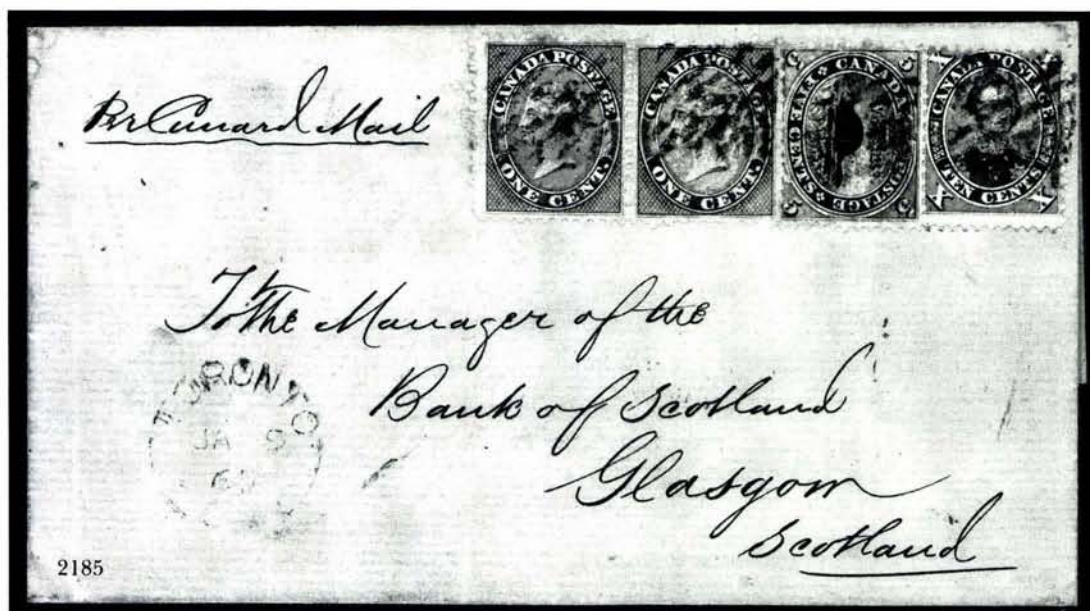 Per Cunard Mail
CANADA POSTAGE
ONE CENT.
CANADA POSTAGE
ONE CENT.
5 5
CANADA
POSTAGE
FIVE CENTS
5 5
X X
CANADA POSTAGE
TEN CENTS
X X
To the Manager of the
Bank of Scotland
Glasgow
Scotland
TORONTO
JA 9
2185